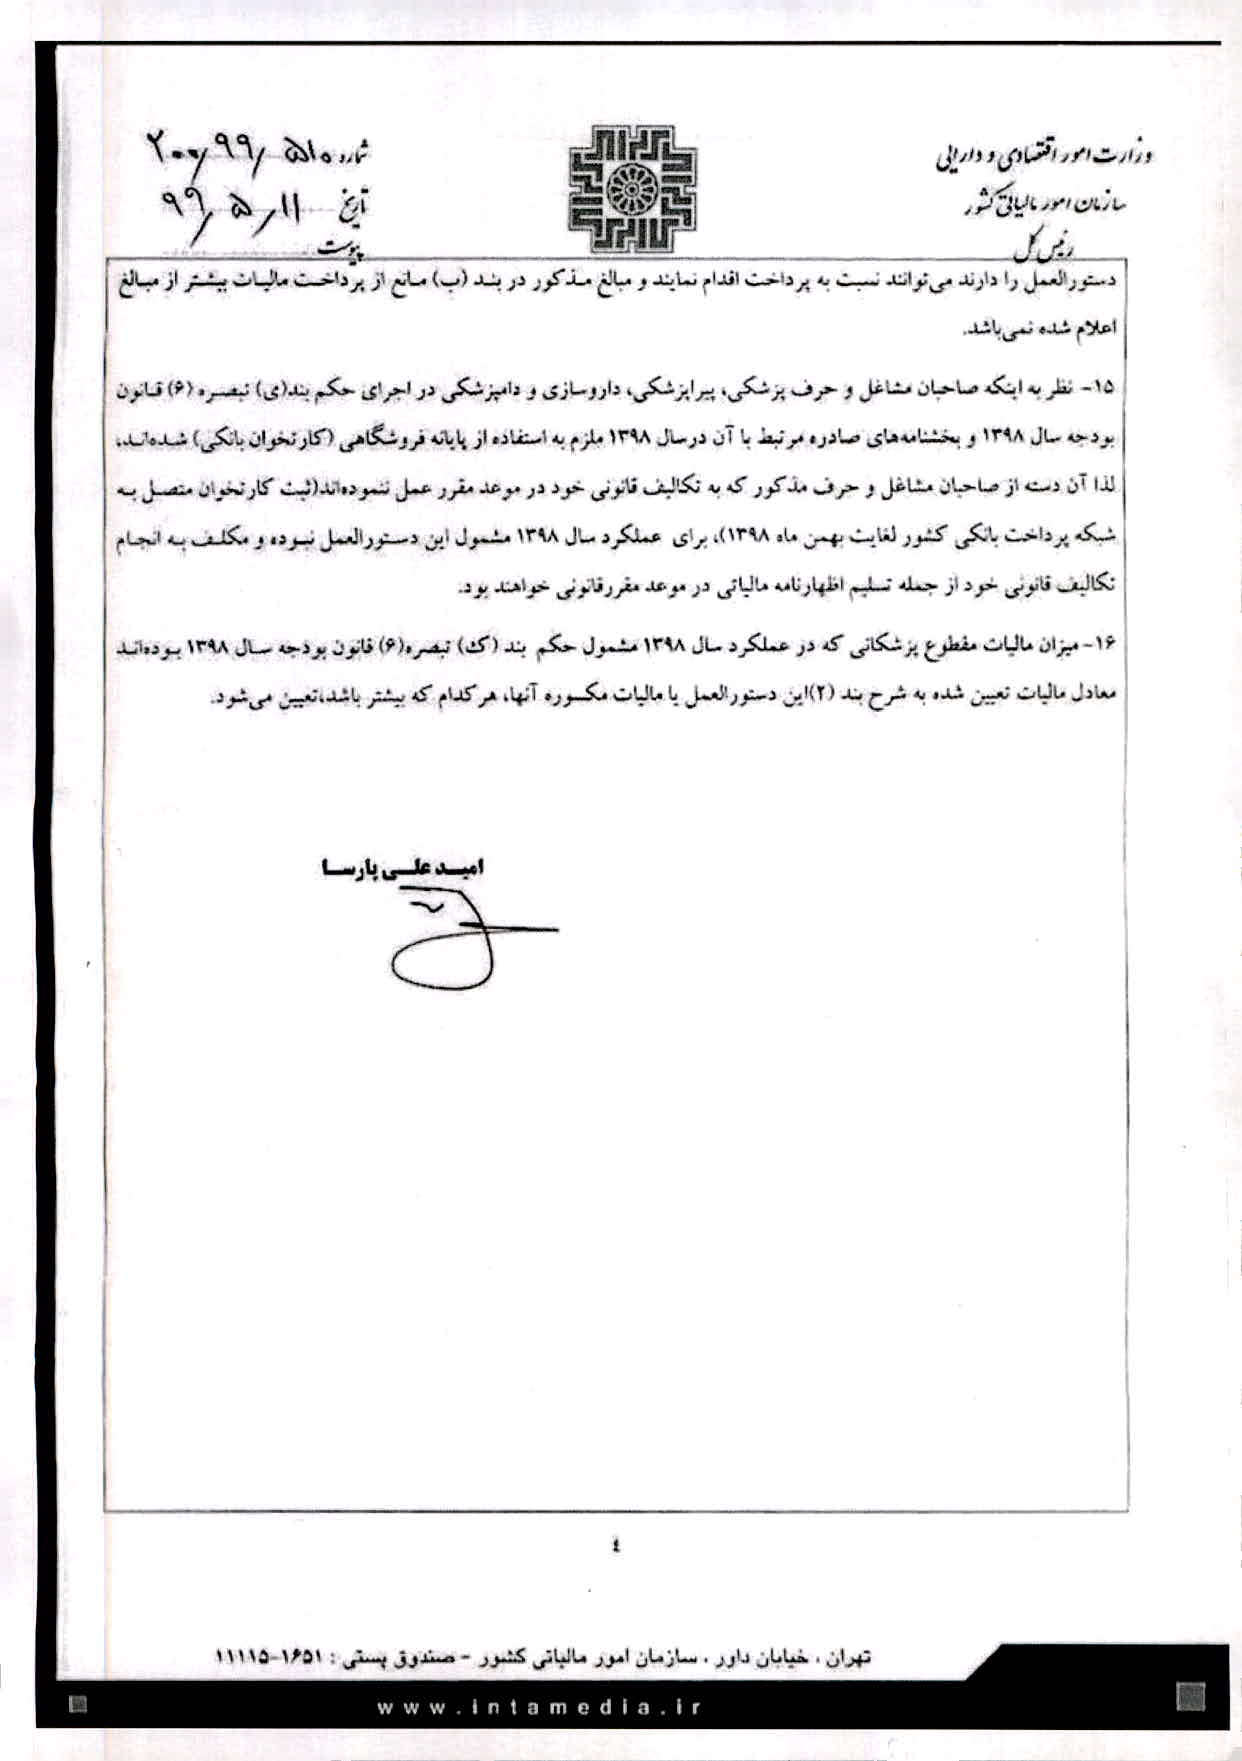 وزارت امور اقتصادی و دارایی
سازمان امور مالیاتی کشور
رئیس کل
شماره ۲۰۰/۹۹/۵۱۰
تاریخ ۹۹/۵/۱۱
پیوست
دستورالعمل را دارند می‌توانند نسبت به پرداخت اقدام نمایند و مبالغ مذکور در بند (ب) مانع از پرداخت مالیات بیشتر از مبالغ
اعلام شده نمی‌باشد.
۱۵- نظر به اینکه صاحبان مشاغل و حرف پزشکی، پیراپزشکی، داروسازی و دامپزشکی در اجرای حکم بند(ی) تبصره (۶) قانون
بودجه سال ۱۳۹۸ و بخشنامه‌های صادره مرتبط با آن درسال ۱۳۹۸ ملزم به استفاده از پایانه فروشگاهی (کارتخوان بانکی) شده‌اند،
لذا آن دسته از صاحبان مشاغل و حرف مذکور که به تکالیف قانونی خود در موعد مقرر عمل ننموده‌اند(ثبت کارتخوان متصل به
شبکه پرداخت بانکی کشور لغایت بهمن ماه ۱۳۹۸)، برای عملکرد سال ۱۳۹۸ مشمول این دستورالعمل نبوده و مکلف به انجام
تکالیف قانونی خود از جمله تسلیم اظهارنامه مالیاتی در موعد مقررقانونی خواهند بود.
۱۶- میزان مالیات مقطوع پزشکانی که در عملکرد سال ۱۳۹۸ مشمول حکم بند (ک) تبصره(۶) قانون بودجه سال ۱۳۹۸ بوده‌اند
معادل مالیات تعیین شده به شرح بند (۲)این دستورالعمل یا مالیات مکسوره آنها، هرکدام که بیشتر باشد،تعیین می‌شود.
امید علی پارسا
٤
تهران ، خیابان داور ، سازمان امور مالیاتی کشور - صندوق پستی : ۱۶۵۱-۱۱۱۱۵
www.intamedia.ir